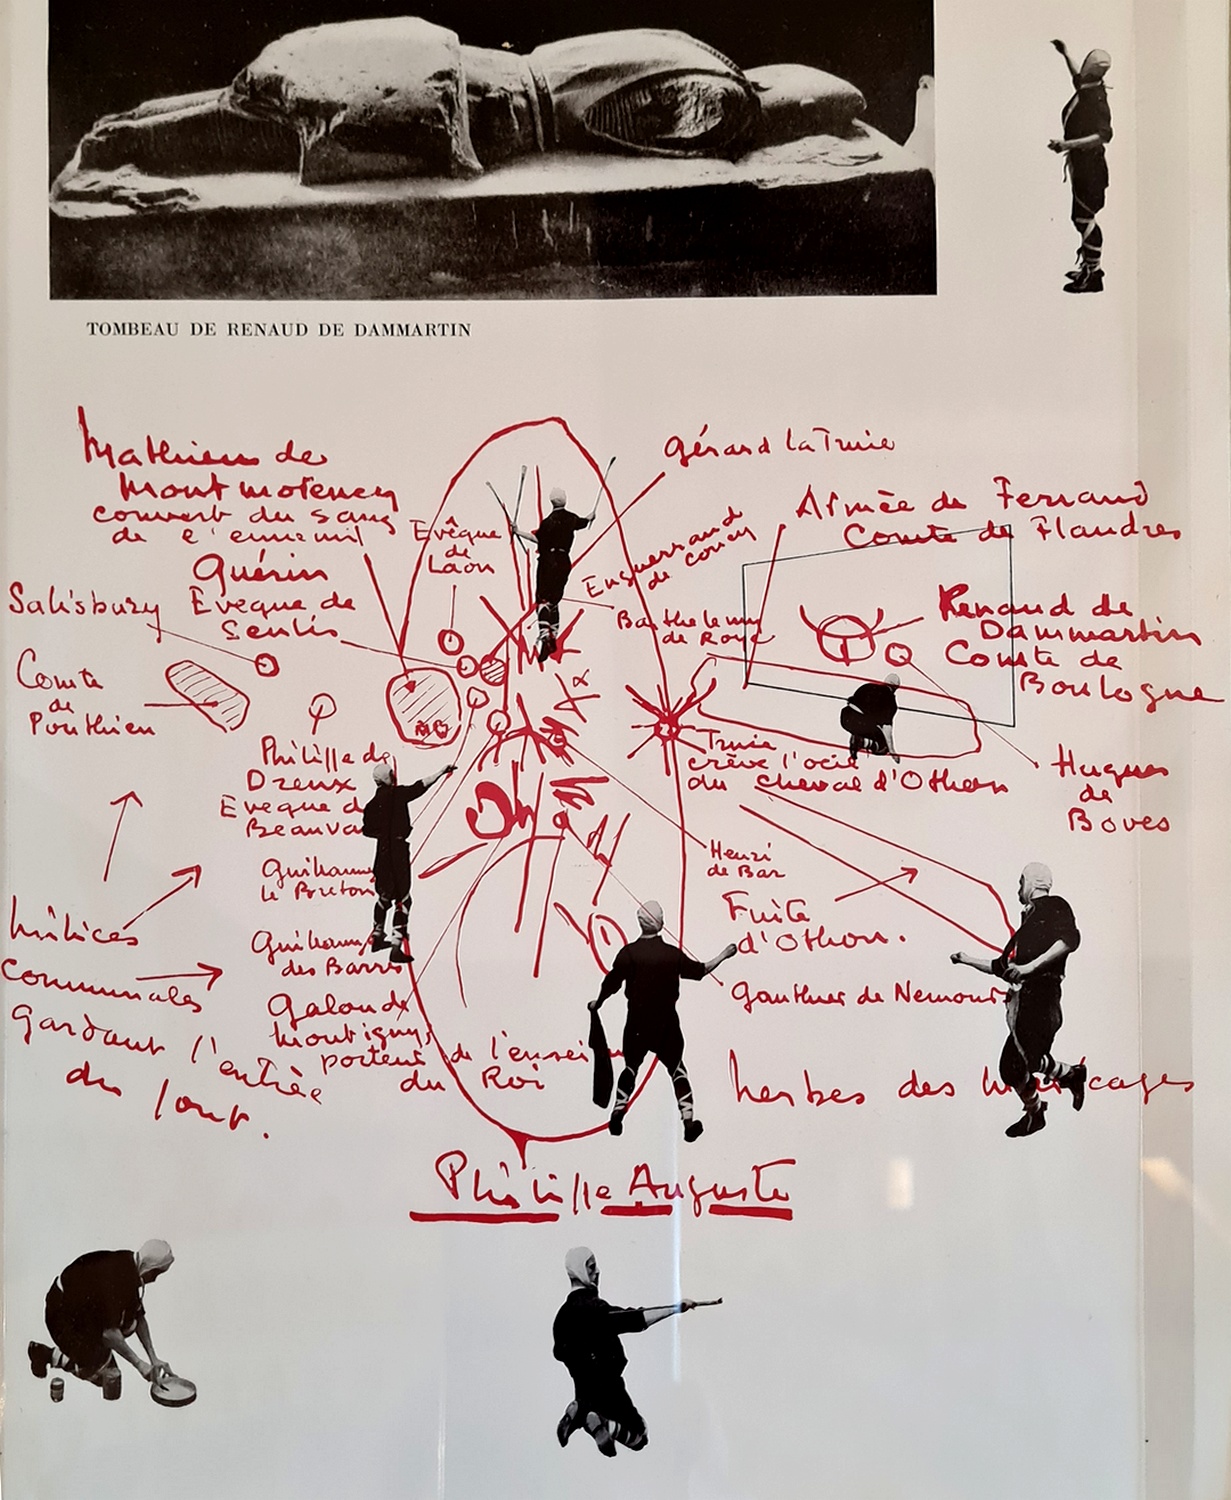 TOMBEAU DE RENAUD DE DAMMARTIN
Mathieu de
Montmorency
couvert du sang
de l'ennemi
Evêque
de
Laon
Gérard la Truie
Enguerrand
de Coucy
Armée de Ferrand
Comte de Flandres
Salisbury
Guérin
Evêque de
Senlis
Barthelemy
de Roye
Renaud de
Dammartin
Comte de
Boulogne
Comte
de
Ponthieu
Philippe de
Dreux
Evêque de
Beauvai
Truie
crève l'oeil
du cheval d'Othon
Hugues
de
Boves
Guillaume
le Breton
Henri
de Bar
Guillaume
des Barres
Fuite
d'Othon.
Milices
communales
gardant l'entrée
du pont.
Galon de
Montigny
porteur de l'ensei
du Roi
Gauthier de Nemours
herbes des marécages
Philippe Auguste